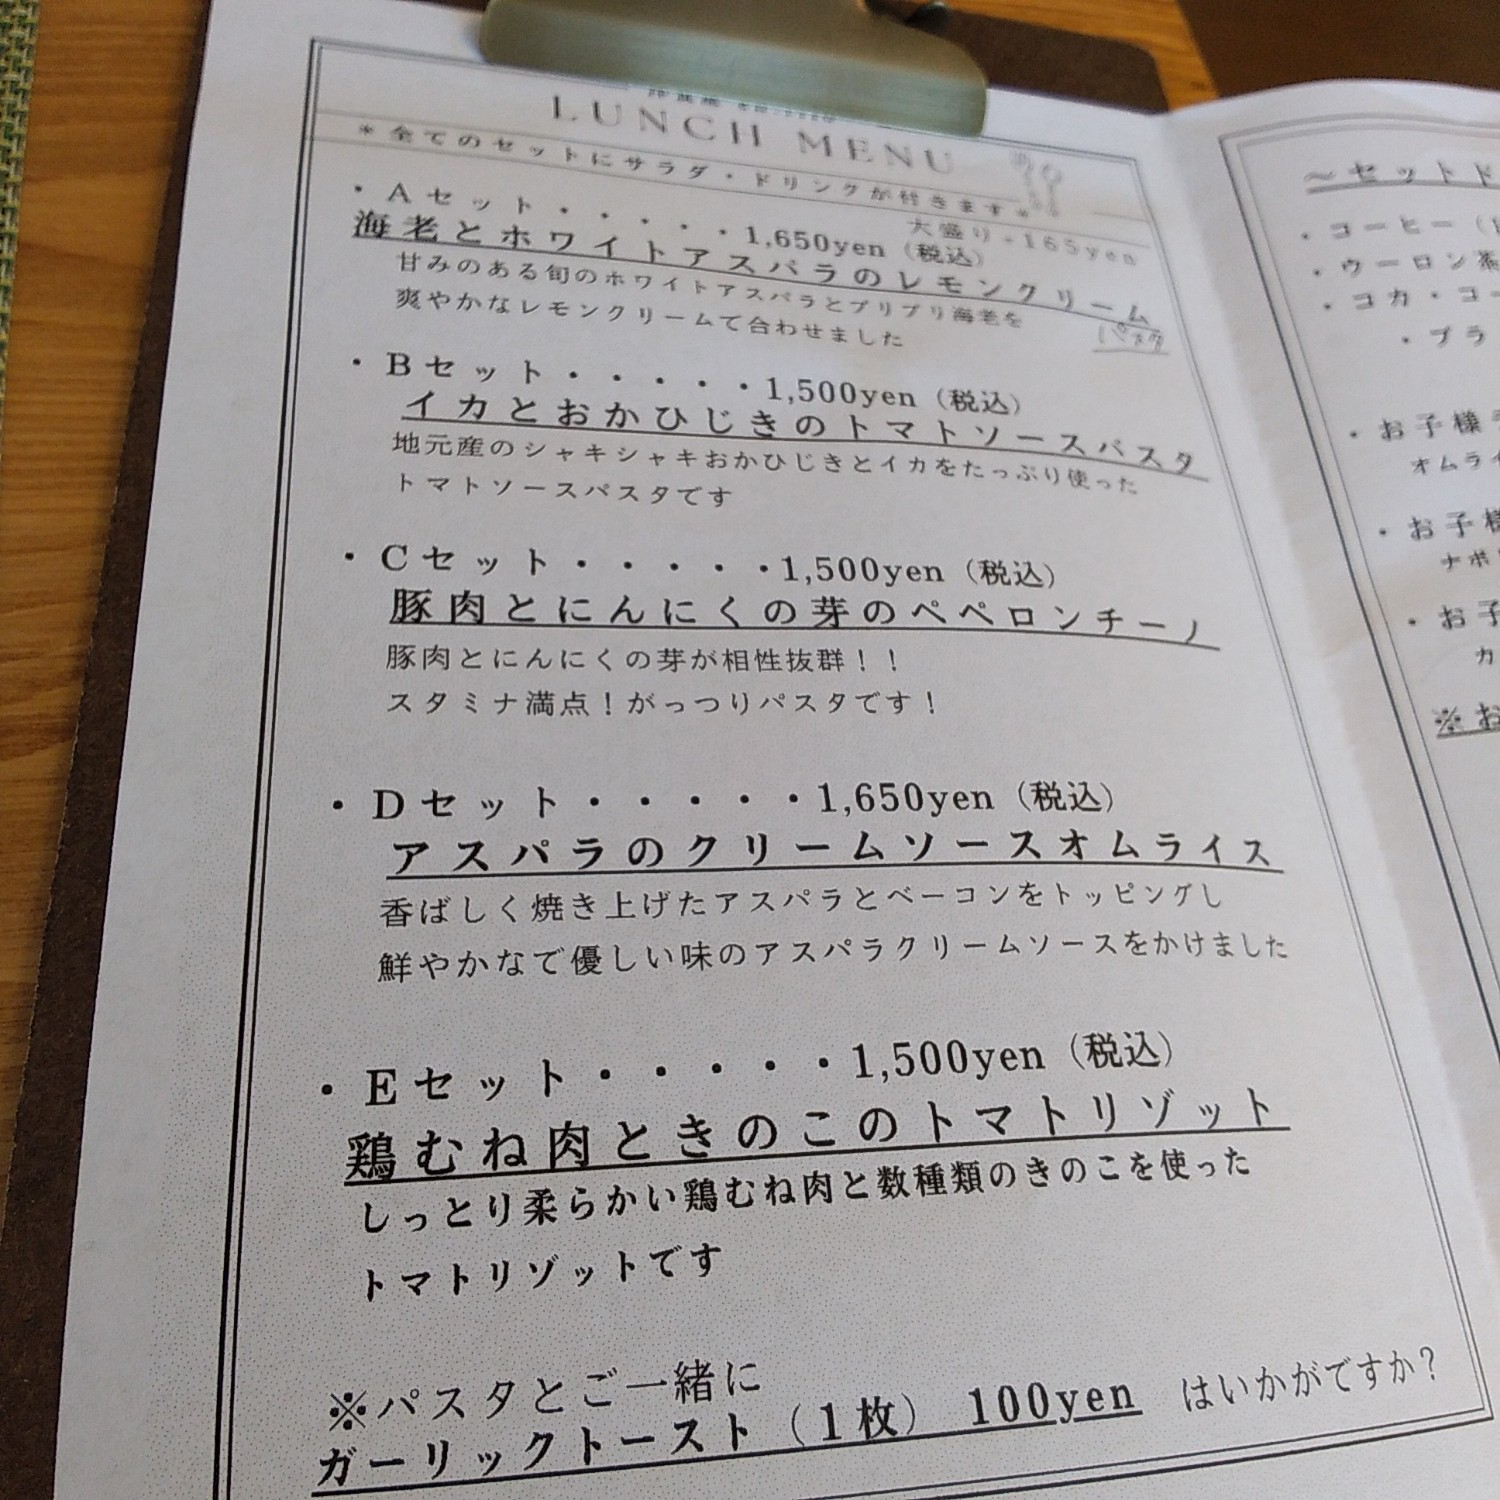 LUNCH MENU
＊全てのセットにサラダ・ドリンクが付きます。
大盛り+165yen
・Aセット・・・・・1,650yen（税込）
海老とホワイトアスパラのレモンクリーム
パスタ
甘みのある旬のホワイトアスパラとプリプリ海老を
爽やかなレモンクリームで合わせました
・Bセット・・・・・1,500yen（税込）
イカとおかひじきのトマトソースパスタ
地元産のシャキシャキおかひじきとイカをたっぷり使った
トマトソースパスタです
・Cセット・・・・・1,500yen（税込）
豚肉とにんにくの芽のペペロンチーノ
豚肉とにんにくの芽が相性抜群！！
スタミナ満点！がっつりパスタです！
・Dセット・・・・・1,650yen（税込）
アスパラのクリームソースオムライス
香ばしく焼き上げたアスパラとベーコンをトッピングし
鮮やかなで優しい味のアスパラクリームソースをかけました
・Eセット・・・・・1,500yen（税込）
鶏むね肉ときのこのトマトリゾット
しっとり柔らかい鶏むね肉と数種類のきのこを使った
トマトリゾットです
※パスタとご一緒に
ガーリックトースト（1枚） 100yen はいかがですか？
～セットド
・コーヒー（
・ウーロン茶
・コカ・コー
・ブラ
・お子様
オムライ
・お子様
ナポリ
・お子
カ
※お